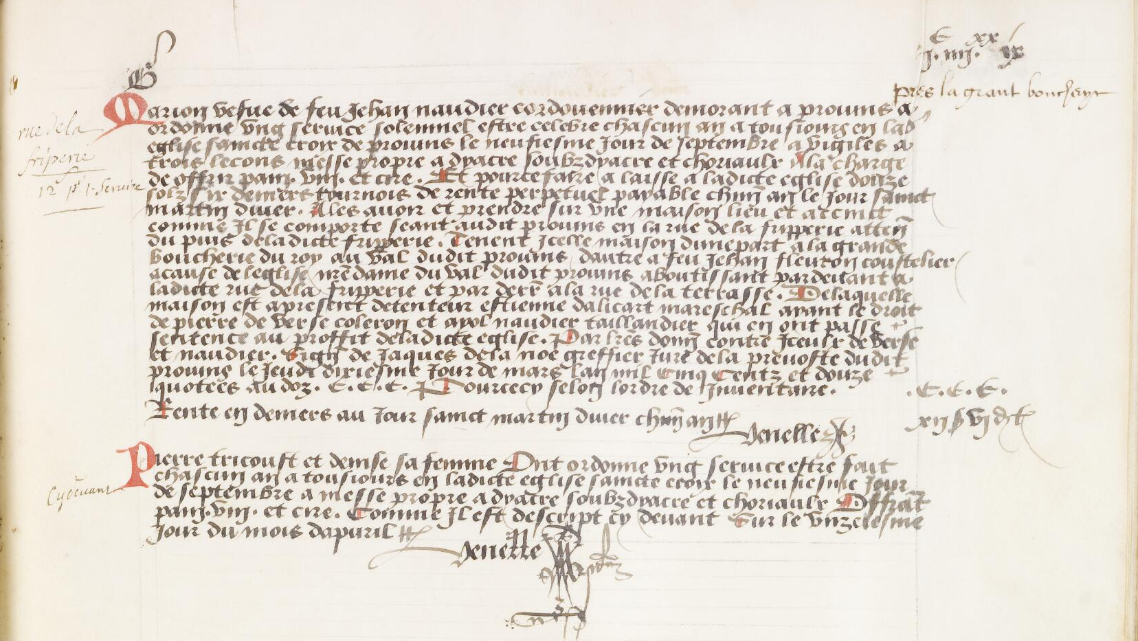 G
C xx
ij. iiij. ix
pres la grant boucherye
rue de la
friperie
12 s pr 1. Service
Marion vefue de feu Jehan naudier cordouennier demorant a prouuins a
ordonne vng seruice solemnel estre celebre chascun an a tousiours en lad
eglise saincte croix de prouuins le neufiesme Jour de septembre a vigiles a
trois lecons messe propre a dyacre soubzdyacre et choriaulx A la charge
de offrir pain. vin. et cire. Et pource faire a laisse a ladicte eglise douze
solz six deniers tournois de rente perpetuel payable chun an le Jour sainct
martin diuer. A les auoir et prendre sur vne maison lieu et atenct
comme Il se comporte seant audit prouuins en la rue de la fripperie atten
du puis deladicte fripperie. Tenent Icelle maison dunepart a la grande
boucherie du roy au val dudit prouuins dautre a feu Jehan fleuron coustelier
acause de leglise nre dame du val dudit prouuins aboutissant pardeuant a
ladicte rue dela fripperie et par derr a la rue de la terrasse. Delaquelle
maison est apresent detenteur estienne dalicart mareschal ayant le droit
de pierre de verse coleron et ayol naudier taillandier qui en ont passe
sentence au proffit deladicte eglise. Par lres donn contre Iceulx de verse
et naudier. Sign de Jaques dela noe greffier Jure de la preuoste dudit
prouuins le Jeudi dixiesme Jour de mars lan mil Cinq Centz et douze
quotees au doz. E. E. E. Pourcecy selon lordre de Inuentaire.
. E. E. E.
Rente en deniers au Jour sainct martin diuer chun an
xij s vj d t
Jenelle
Cy deuant
Pierre tricoust et denise sa femme Ont ordonne vng seruice estre fait
chascun an a tousiours en ladicte eglise saincte croix le neufiesme Jour
de septembre a messe propre a dyacre soubzdyacre et choriaulx Offrat
pain. vin. et cire. Comme Il est descript cy deuant Sur le vnzeiesme
Jour du mois dapuril
Jenelle